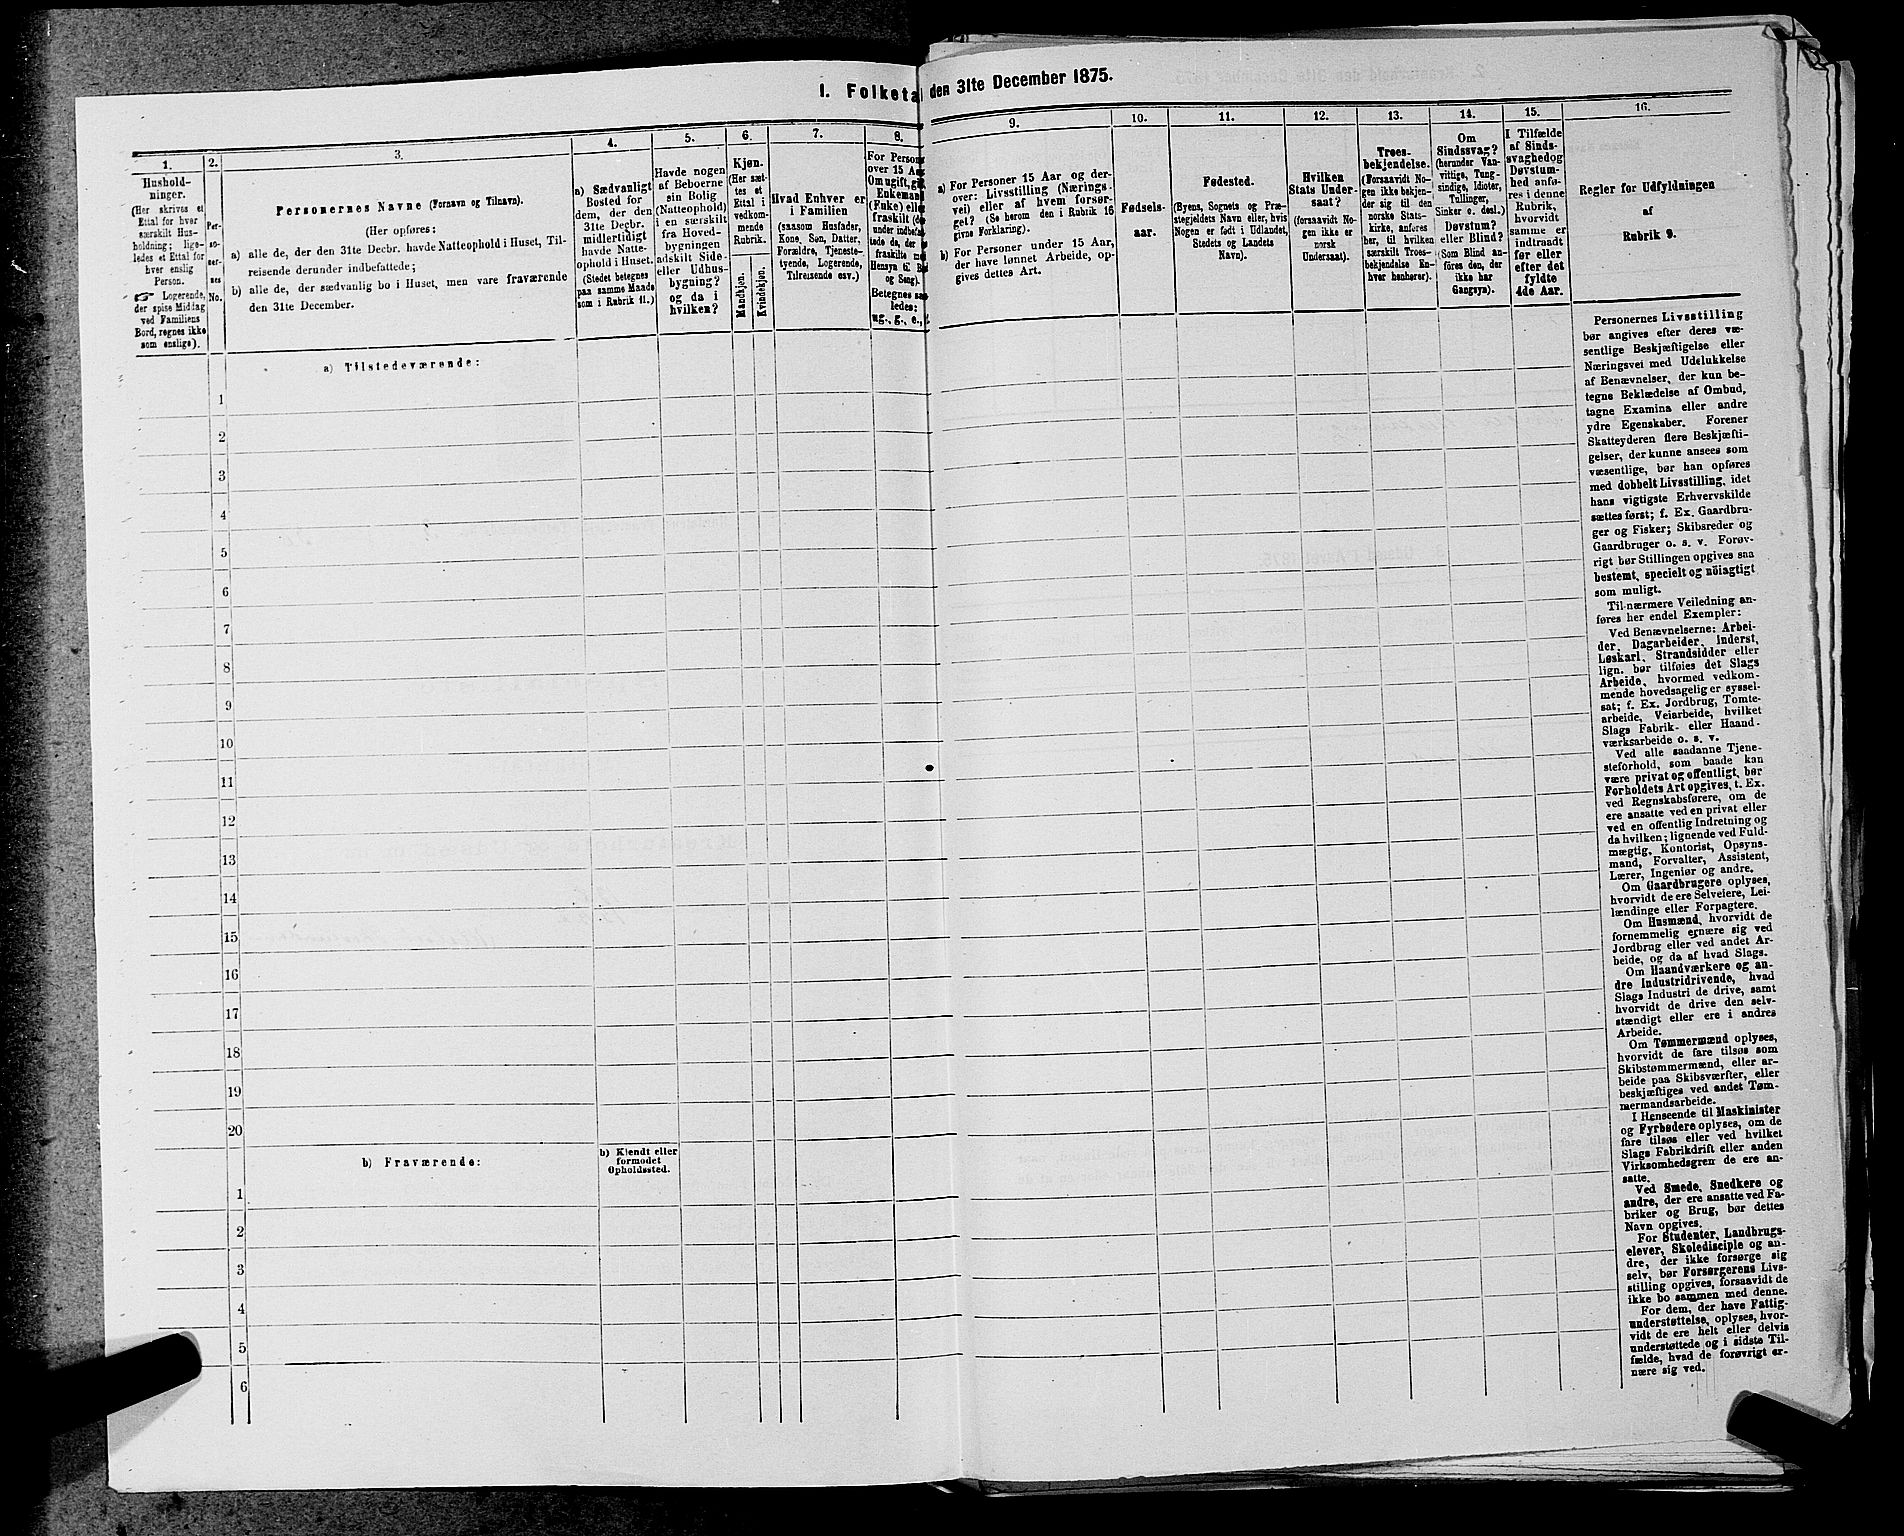 I. Folketal den 31te December 1875.
1.
Hushold-
ninger.
(Her skrives et
Ettal for hver
særskilt Hus-
holdning; lige-
ledes et Ettal for
hver enslig
Person.
☞ Logerende,
der spise Middag
ved Familiens
Bord, regnes ikke
som enslige).
2.
Per-
so-
ner-
nes
No.
3.
Personernes Navne (Fornavn og Tilnavn).
(Her opføres:
a) alle de, der den 31te Decbr. havde Natteophold i Huset, Til-
reisende derunder indbefattede;
b) alle de, der sædvanlig bo i Huset, men vare fraværende
den 31te December.
4.
a) Sædvanligt
Bosted for
dem, der den
31te Decbr.
midlertidigt
havde Natte-
ophold i Huset.
(Stedet betegnes
paa samme Maade
som i Rubrik 11.)
5.
Havde nogen
af Beboerne
sin Bolig
(Natteophold)
i en særskilt
fra Hoved-
bygningen
adskilt Side-
eller Udhus-
bygning?
og da i
hvilken?
6.
Kjøn.
(Her sæt-
tes et
Ettal i
vedkom-
mende
Rubrik.
Mandkjøn.
Kvindekjøn.
7.
Hvad Enhver er
i Familien
(saasom Husfader,
Kone, Søn, Datter,
Forældre, Tjeneste-
tyende, Logerende,
Tilreisende osv.)
8.
For Person
over 15 Aa
Om ugift, gif
Enkemand
(Enke) elle
fraskilt (de
under indbefat
tede da, der e
fraskilte me
Hensyn til Bo
og Seng).
Betegnes saa
ledes:
ug., g., e.,
9.
a) For Personer 15 Aar og der-
over: Livsstilling (Nærings-
vei) eller af hvem forsør-
get? (Se herom den i Rubrik 16
givne Forklaring).
b) For Personer under 15 Aar,
der have lønnet Arbeide, op-
gives dettes Art.
10.
Fødsels-
aar.
11.
Fødested.
(Byens, Sognets og Præ-
stegjeldets Navn eller, hvis
Nogen er født i Udlandet,
Stedets og Landets
Navn).
12.
Hvilken
Stats Under-
saat?
(forsaavidt No-
gen ikke er
norsk
Undersaat).
13.
Troes-
bekjendelse.
(Forsaavidt No-
gen ikke bekjen-
der sig til den
norske Stats-
kirke, anføres
her, til hvilken
særskilt Troes-
bekjendelse En-
hver henhører).
14.
Om
Sindssvag?
(herunder Van-
vittige, Tung-
sindige, Idioter,
Tullinger,
Sinker o. desl.)
Døvstum?
eller Blind?
(Som Blind an-
føres den, der
ikke har
Gangsyn).
15.
I Tilfælde
af Sinds-
svaghed og
Døvstum-
hed anfø-
res i denne
Rubrik,
hvorvidt
samme er
indtraadt
før eller
efter det
fyldte
4de Aar.
16.
Regler for Udfyldningen
af
Rubrik 9.
a) Tilstedeværende:
1
2
3
4
5
6
7
8
9
10
11
12
13
14
15
16
17
18
19
20
b) Fraværende:
b) Kjendt eller
formodet
Opholdssted.
1
2
3
4
5
6
Personernes Livsstilling
bør angives efter deres væ-
sentlige Beskjæftigelse eller
Næringsvei med Udelukkelse
af Benævnelser, der kun be-
tegne Beklædelse af Ombud,
tagne Examina eller andre
ydre Egenskaber. Forener
Skatteyderen flere Beskjæfti-
gelser, der kunne ansees som
væsentlige, bør han opføres
med dobbelt Livsstilling, idet
hans vigtigste Erhvervskilde
sættes først; f. Ex. Gaardbru-
ger og Fisker; Skibsreder og
Gaardbruger o. s. v. Forøv-
rigt bør Stillingen opgives saa
bestemt, specielt og nöiagtigt
som muligt.
Til nærmere Veiledning an-
føres her endel Exempler:
Ved Benævnelserne: Arbei-
der, Dagarbeider, Inderst,
Løskarl, Strandsidder eller
lign. bør tilføies det Slags
Arbeide, hvormed vedkom-
mende hovedsagelig er syssel-
sat; f. Ex. Jordbrug, Tomte-
arbeide, Veiarbeide, hvilket
Slags Fabrik- eller Haand-
værksarbeide o. s. v.
Ved alle saadanne Tjene-
steforhold, som baade kan
være privat og offentligt, bør
Forholdets Art opgives, t. Ex.
ved Regnskabsførere, om de
ere ansatte ved en privat eller
ved en offentlig Indretning og
da hvilken; lignende ved Fuld-
mægtig, Kontorist, Opsyns-
mand, Forvalter, Assistent,
Lærer, Ingeniør og andre.
Om Gaardbrugere oplyses,
hvorvidt de ere Selveiere, Lei-
lændinge eller Forpagtere.
Om Husmænd, hvorvidt de
fornemmelig ernære sig ved
Jordbrug eller ved andet Ar-
beide, og da af hvad Slags.
Om Haandværkere og an-
dre Industridrivende, hvad
Slags Industri de drive, samt
hvorvidt de drive den selv-
stændigt eller ere i andres
Arbeide.
Om Tømmermænd oplyses,
hvorvidt de fare tilsøs som
Skibstømmermænd, eller ar-
beide paa Skibsværfter, eller
beskjæftiges ved andet Tøm-
mermandsarbeide.
I Henseende til Maskinister
og Fyrbødere oplyses, om de
fare tilsøs eller ved hvilket
Slags Fabrikdrift eller anden
Virksomhedsgren de ere an-
satte.
Ved Smede, Snedkere og
andre, der ere ansatte ved Fa-
briker og Brug, bør dettes
Navn opgives.
For Studenter, Landbrugs-
elever, Skoledisciple og an-
dre, der ikke forsørge sig
selv, bør Forsørgerens Livs-
stilling opgives, forsaavidt de
ikke bo sammen med denne.
For dem, der have Fattig-
understøttelse, oplyses, hvor-
vidt de ere helt eller delvis
understøttede og i sidste Til-
fælde, hvad de forøvrigt er-
nære sig ved.